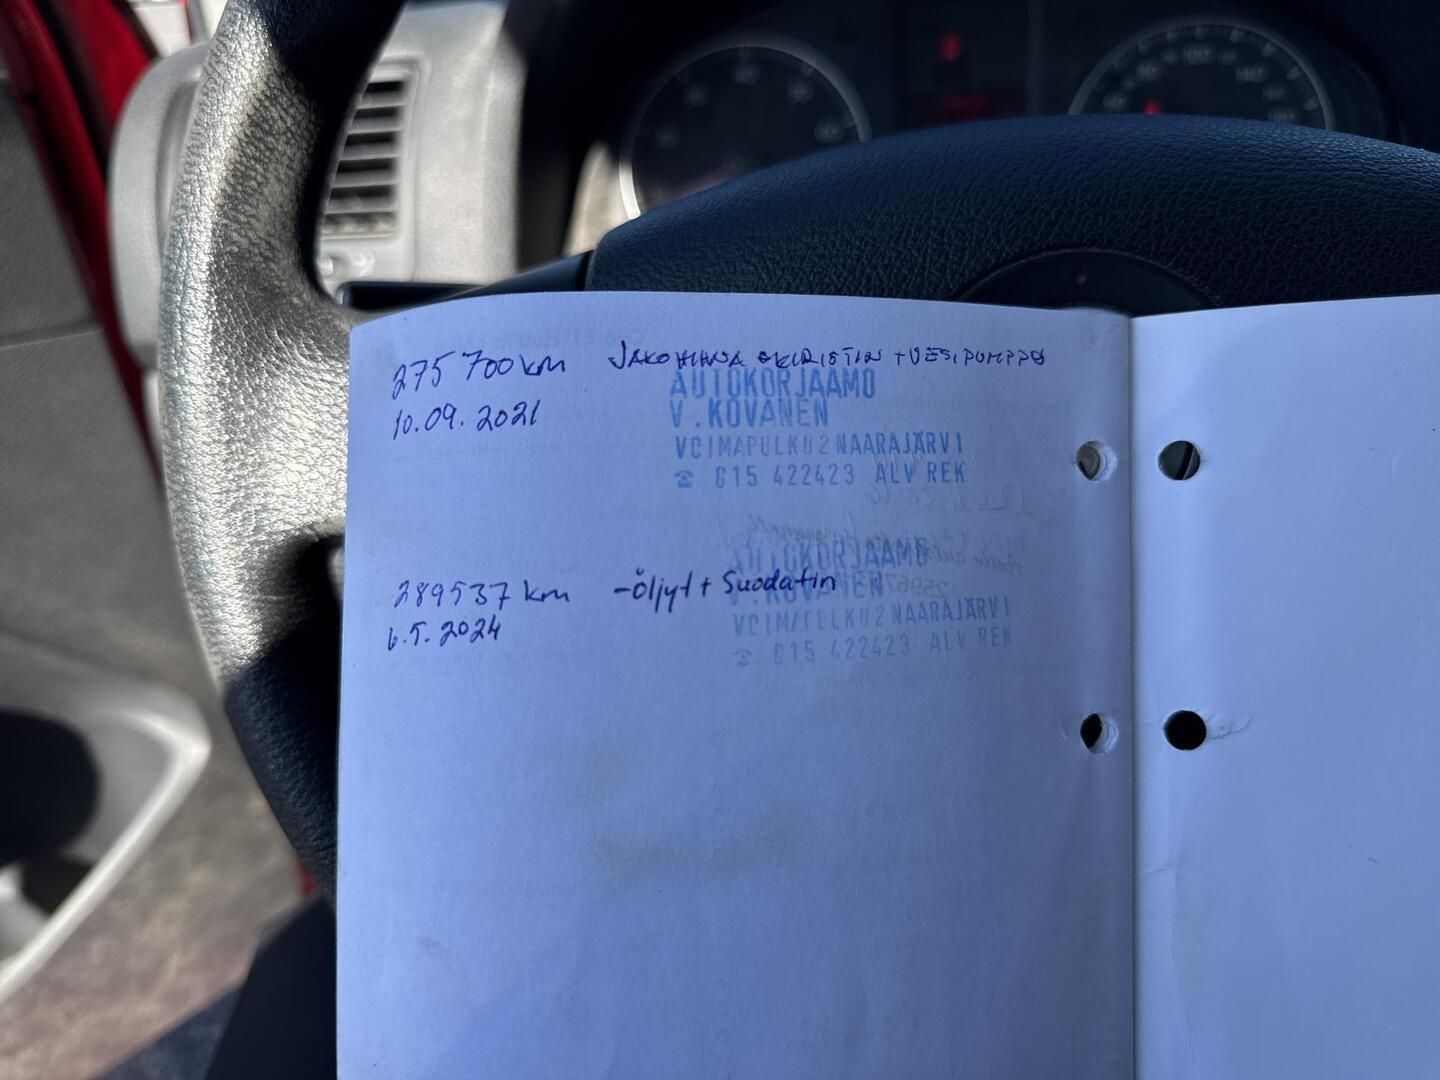 275 700 km JAKOHIHNA + KIRISTIN + VESIPUMPPU
10.09.2021
AUTOKORJAAMO
V.KOVANEN
VOIMAPOLKU 2 NAARAJÄRVI
☎ 615 422423 ALV REK
AUTOKORJAAMO
289537 km -Öljyt + Suodatin
V.KOVANEN
6.5.2024
VOIMAPOLKU 2 NAARAJÄRVI
☎ 615 422423 ALV REK